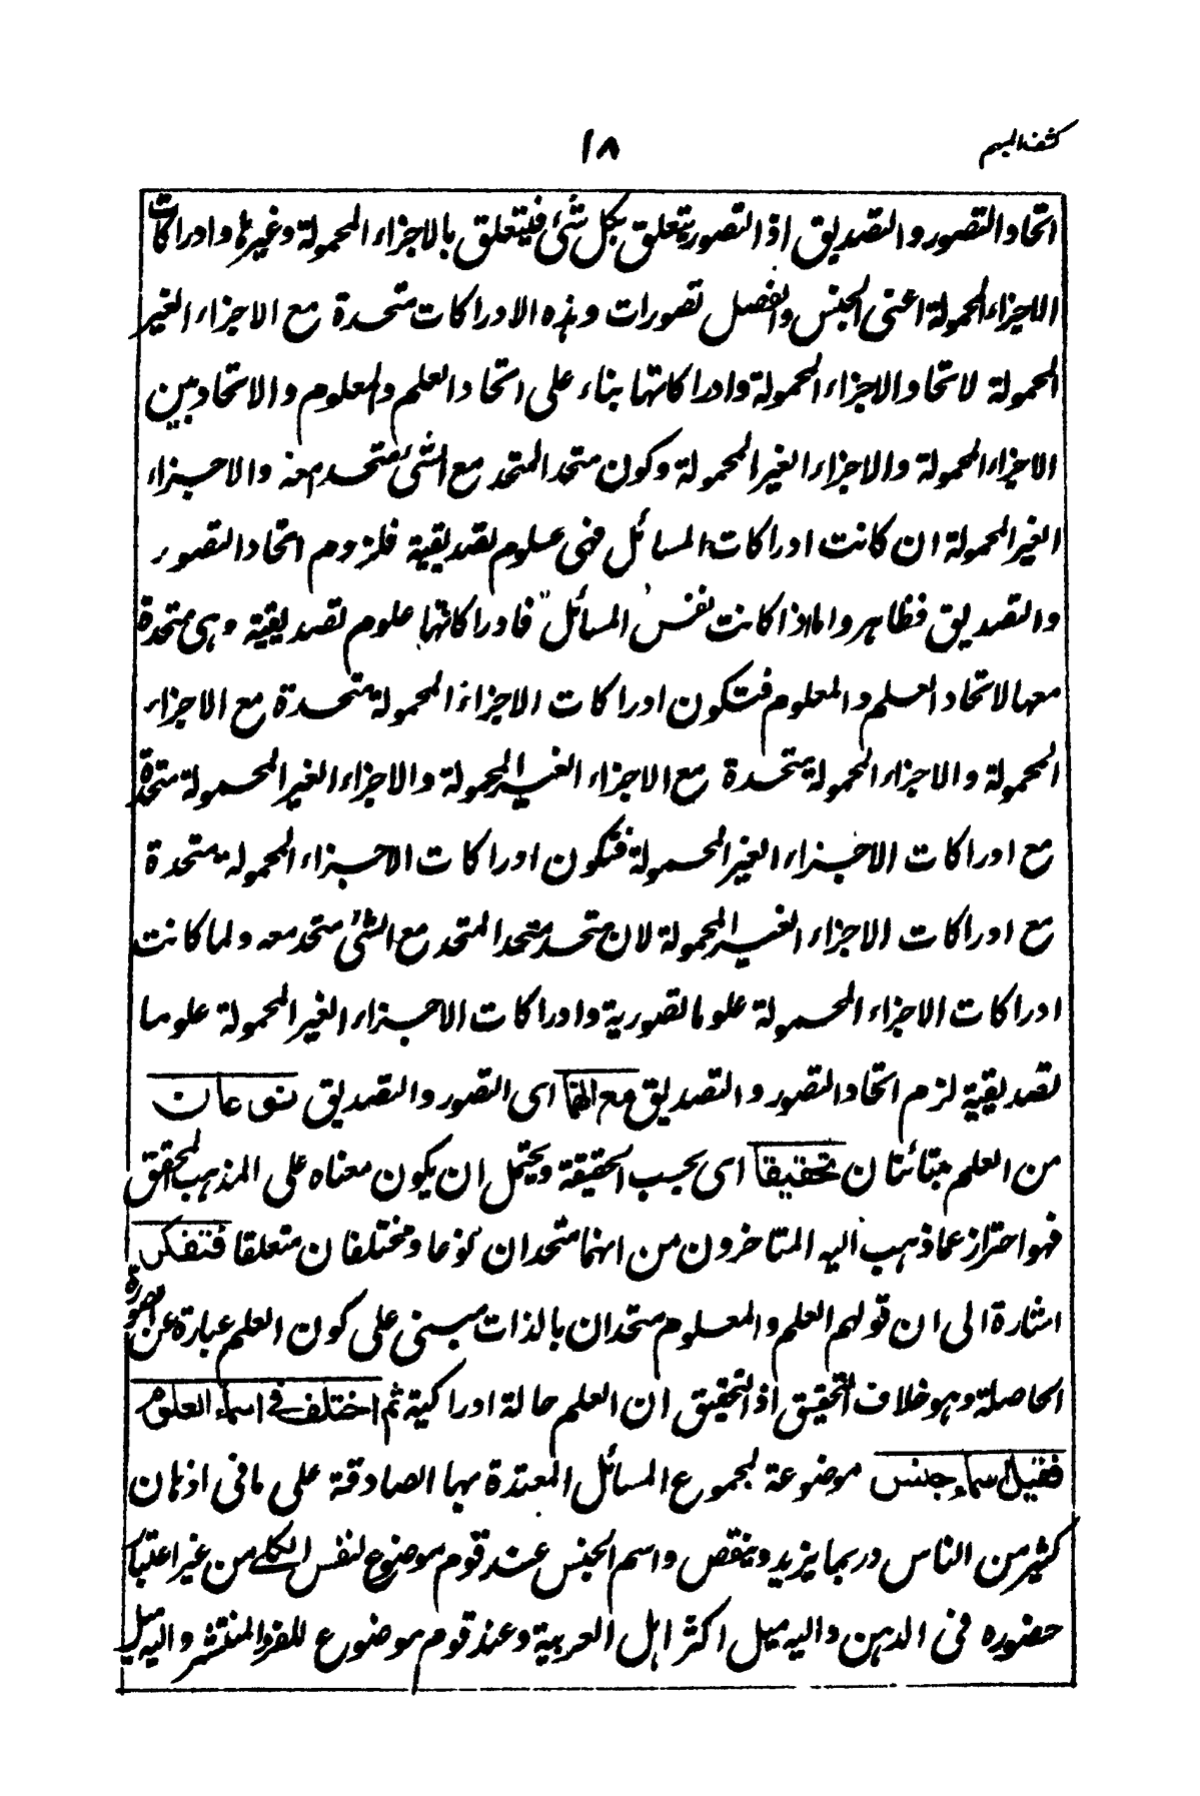 كشف المبهم
١٨
اتحاد التصور والتصديق اذ التصور يتعلق بكل شئ فيتعلق بالاجزاء المحمولة وغيرها وادراكات
الاجزاء المحمولة اعنى الجنس والفصل تصورات وهذه الادراكات متحدة مع الاجزاء الغير
المحمولة لاتحاد الاجزاء المحمولة وادراكاتها بناء على اتحاد العلم والمعلوم والاتحاد بين
الاجزاء المحمولة والاجزاء الغير المحمولة وكون متحد المتحد مع الشئ متحد معه والاجزاء
الغير المحمولة ان كانت ادراكات المسائل فهى علوم تصديقية فلزوم اتحاد التصور
والتصديق فظاهر واما اذا كانت نفس المسائل فادراكاتها علوم تصديقية وهى متحدة
معها لاتحاد العلم والمعلوم فتكون ادراكات الاجزاء المحمولة متحدة مع الاجزاء
المحمولة والاجزاء المحمولة متحدة مع الاجزاء الغير المحمولة والاجزاء الغير المحمولة متحدة
مع ادراكات الاجزاء الغير المحمولة فتكون ادراكات الاجزاء المحمولة متحدة
مع ادراكات الاجزاء الغير المحمولة لان متحد متحد المتحد مع الشئ متحد معه ولما كانت
ادراكات الاجزاء المحمولة علوما تصورية وادراكات الاجزاء الغير المحمولة علوما
تصديقية لزم اتحاد التصور والتصديق مع انهما اى التصور والتصديق نوعان
من العلم متبائنان تحقيقا اى بحسب الحقيقة ويحتمل ان يكون معناه على المذهب المحقق
فهو احتراز عما ذهب اليه المتاخرون من انهما متحدان نوعا ومختلفان متعلقا فتفكر
اشارة الى ان قولهم العلم والمعلوم متحدان بالذات مبنى على كون العلم عبارة عن الصورة
الحاصلة وهو خلاف التحقيق اذ التحقيق ان العلم حالة ادراكية ثم اختلف في اسماء العلوم
فقيل اسماء جنس موضوعة لمجموع المسائل المعتدة بها الصادقة على ما فى اذهان
كثير من الناس وربما يزيد وينقص واسم الجنس عند قوم موضوع لنفس الكلے من غير اعتبار
حضوره فى الذهن واليه ميل اكثر اهل العربية وعند قوم موضوع للفرد المنتشر واليه ميل